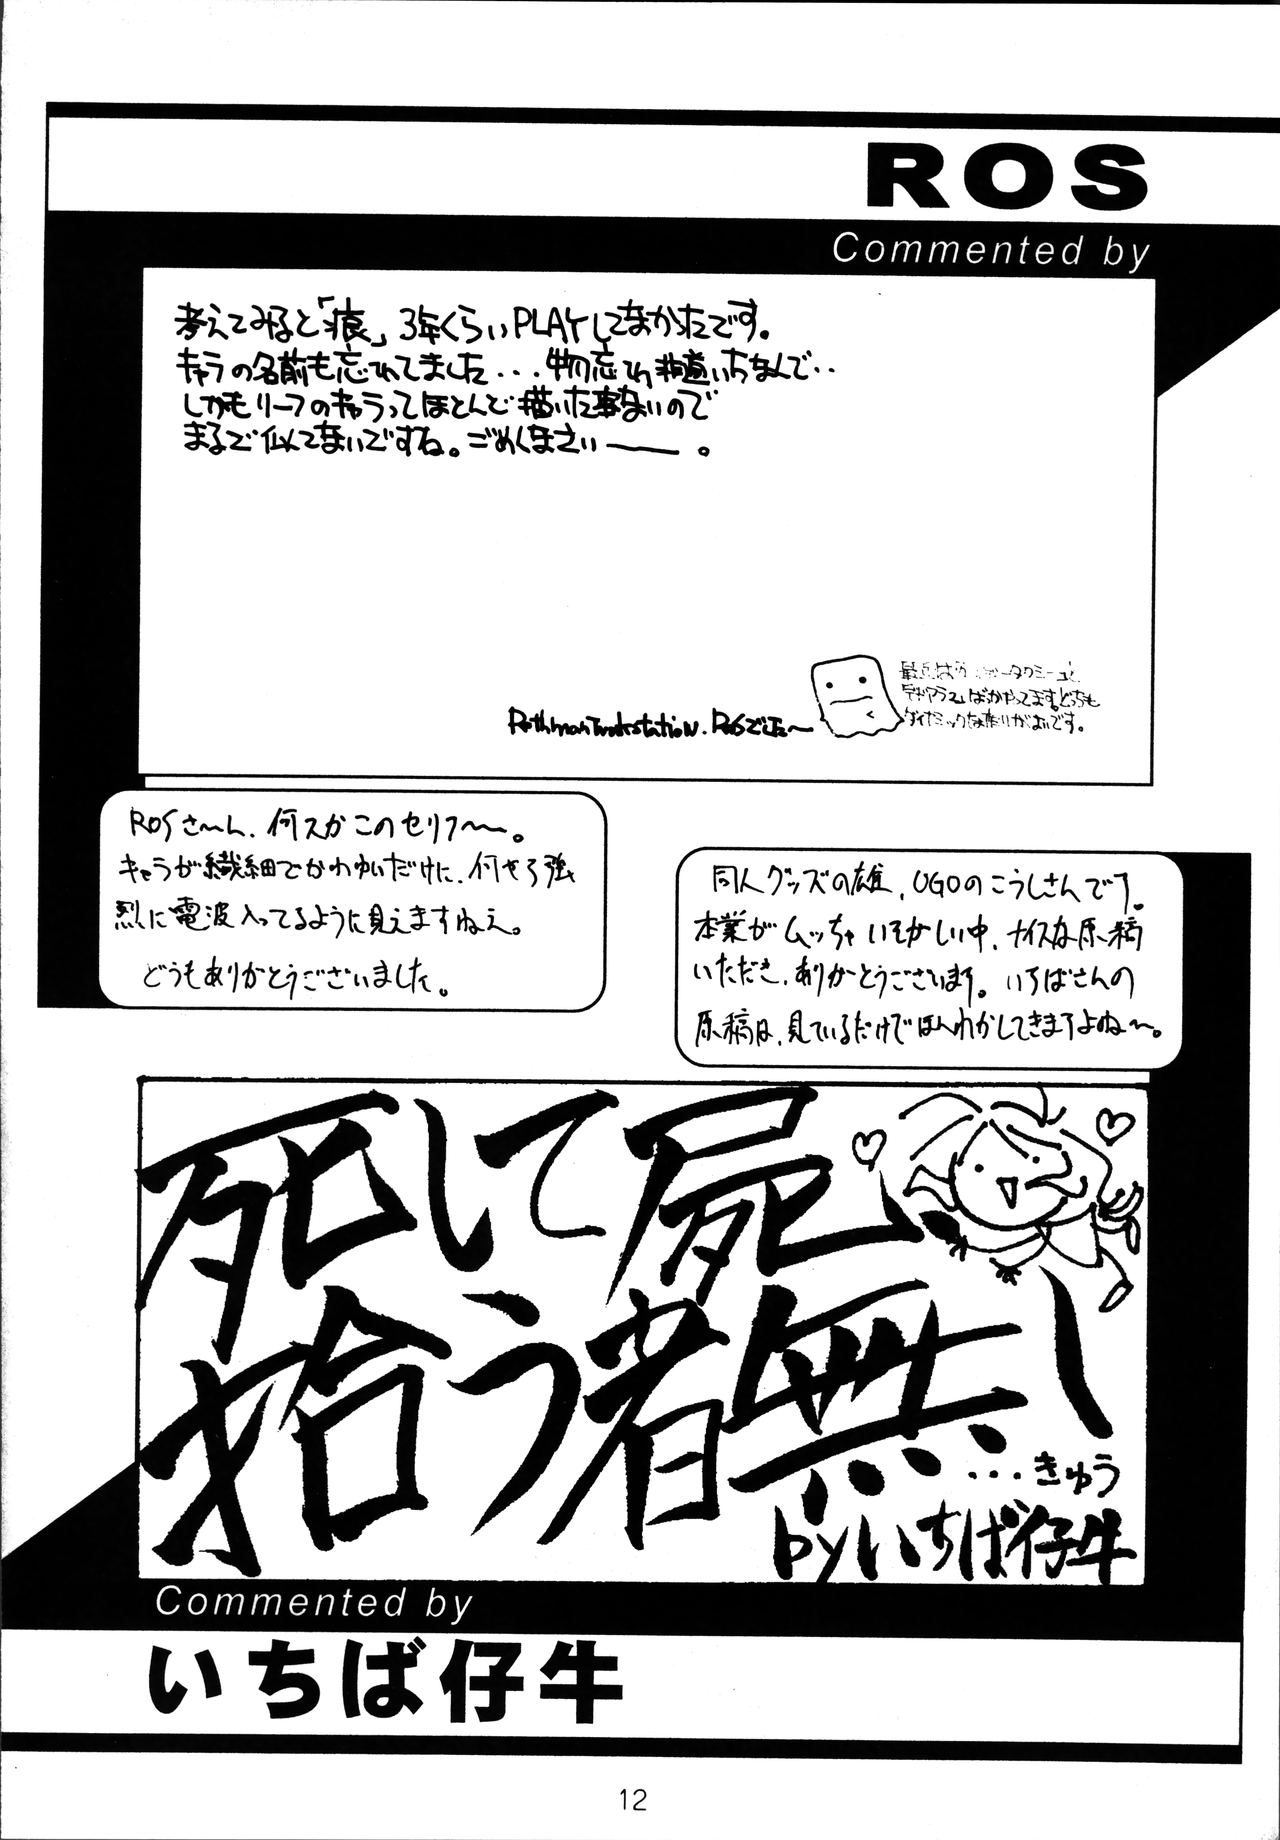 ROS
Commented by
考えてみると「痕」3年くらいPLAYしてなかったです。
キャラの名前も忘れてました...物忘れ 
しかもリーフのキャラってほとんど描いた事ないので
まるで似てないですね。ごめんなさい――。
最近は
ばかやってます。どっちも
ダイナミックな 
ROSでした〜
ROSさ〜ん、何スかこのセリフ〜〜。
キャラが繊細でかわゆいだけに、何やら強
烈に電波入ってるように見えますねえ。
どうもありがとうございました。
同人グッズの雄、UGOのこうしさんです。
本業がムッちゃいそがしい中、ナイスな原稿
いただき、ありがとうございます。いちばさんの
原稿は、見ているだけでほんわかしてきますよね〜。
死して屍
拾う者無し
...きゅう
byいちば仔牛
Commented by
いちば仔牛
12